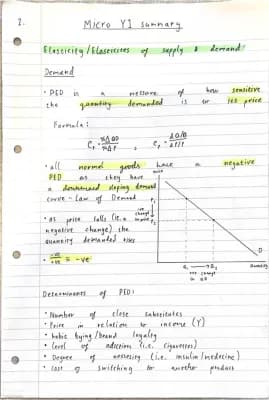 2.
Micro Y1 summary
Elasticity/Elasticities of supply & demand:
Demand
• PED is a measure of how sensitive
the quantity demanded is to its price
Formula:
• all normal goods have a negative
PED as they have
a downward sloping demand
curve - Law of Demand
• as price falls (i.e. a
negative change) the
quantity demanded rises
= -ve
P₁
P₂
D
Quantity
Determinants of PED:
• Number of close substitutes
• Price in relation to income (Y)
• habit buying/brand loyalty
• level of addiction (i.e. cigarettes)
• Degree of necessity (i.e. insulin/medecine)
• Cost of switching to another product